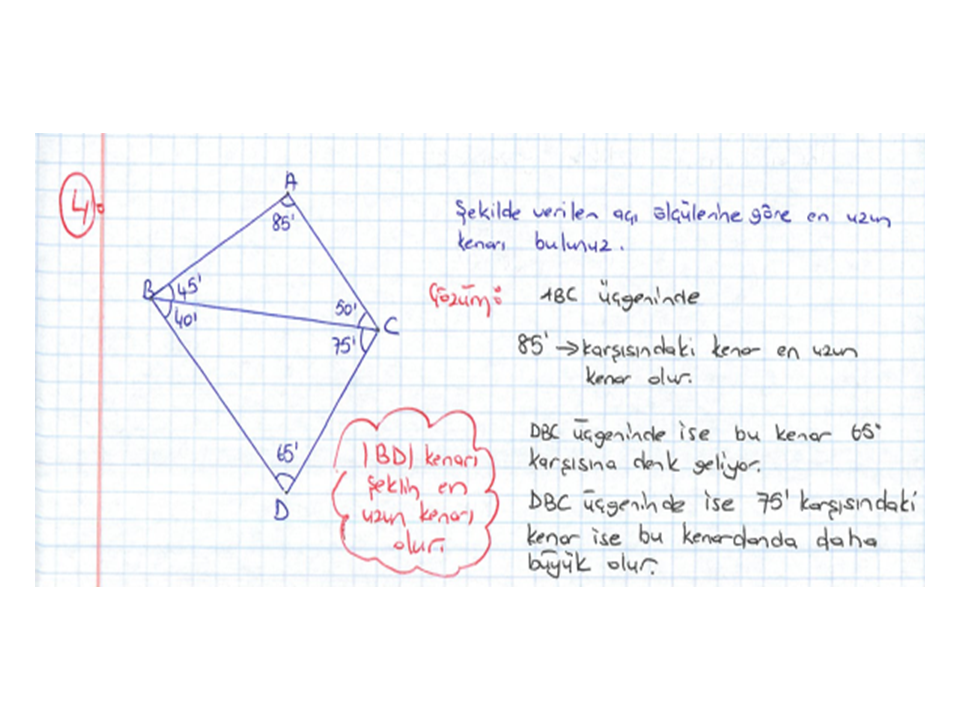 4.
A
85'
B
45'
40'
50'
75'
C
65'
D
Şekilde verilen açı ölçülerine göre en uzun
kenarı bulunuz.
Çözüm: ABC üçgeninde
85' → karşısındaki kenar en uzun
kenar olur.
DBC üçgeninde ise bu kenar 65°
karşısına denk geliyor.
DBC üçgeninde ise 75' karşısındaki
kenar ise bu kenardanda daha
büyük olur.
|BD| kenarı
şeklin en
uzun kenarı
olur.